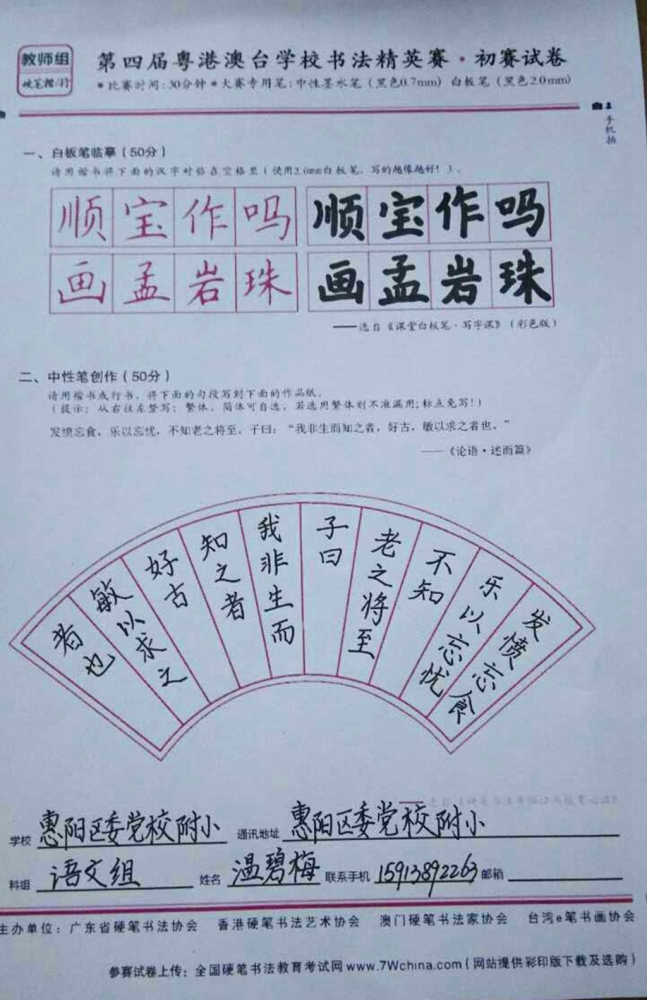 教师组
硬笔楷/行
第四届粤港澳台学校书法精英赛·初赛试卷
*比赛时间:30分钟*大赛专用笔:中性墨水笔(黑色0.7mm)白板笔(黑色2.0mm)
手机拍
一、白板笔临摹(50分)
请用楷书将下面的汉字对临在空格里(使用2.0mm白板笔,写的越像越好!)。
顺宝作吗 顺宝作吗
画孟岩珠 画孟岩珠
——选自《课堂白板笔·写字课》(彩色版)
二、中性笔创作(50分)
请用楷书或行书,将下面的句段写到下面的作品纸。
(提示:从右往左竖写;繁体、简体可自选,若选用繁体则不准漏用;标点免写!)
发愤忘食,乐以忘忧,不知老之将至。子曰:“我非生而知之者,好古,敏以求之者也。”
——《论语·述而篇》
发愤忘食
乐以忘忧
不知
老之将至
子曰
我非生而
知之者
好古
敏以求之
者也
学校 惠阳区委党校附小 通讯地址 惠阳区委党校附小
科组 语文组 姓名 温碧梅 联系手机 15913892263 邮箱
主办单位:广东省硬笔书法协会 香港硬笔书法艺术协会 澳门硬笔书法家协会 台湾e笔书画协会
参赛试卷上传:全国硬笔书法教育考试网www.7Wchina.com(网站提供彩印版下载及选购)